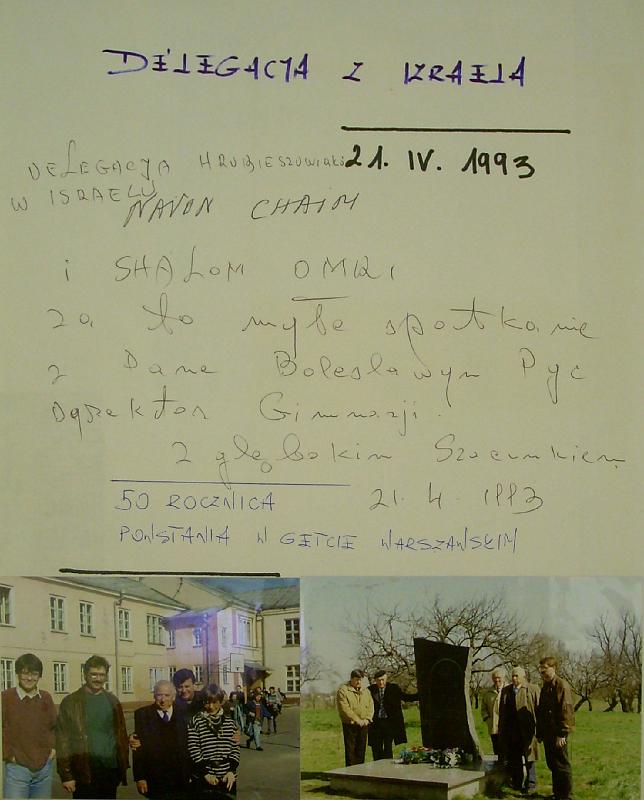 DELEGACJA Z IZRAELA
21. IV. 1993
DELEGACJA HRUBIESZOWIAKÓW
W ISRAELU
NAVON CHAIM
i SHALOM OMRI
za to myłe spotkanie
z Pane Bolesławym Pyc
Dyrektor Gimnazji.
z głębokim Szacunkiem
21. 4. 1993
50 ROCZNICA
POWSTANIA W GETCIE WARSZAWSKIM